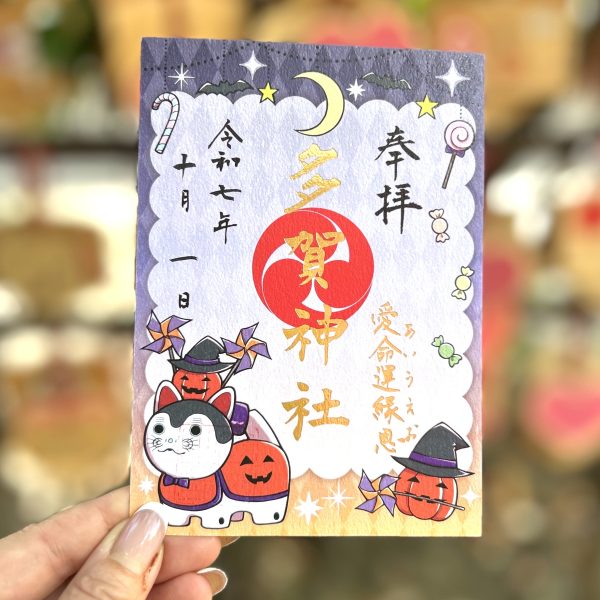 奉拝
多賀神社
愛命運縁恩
あいうえお
令和七年
十月 一日